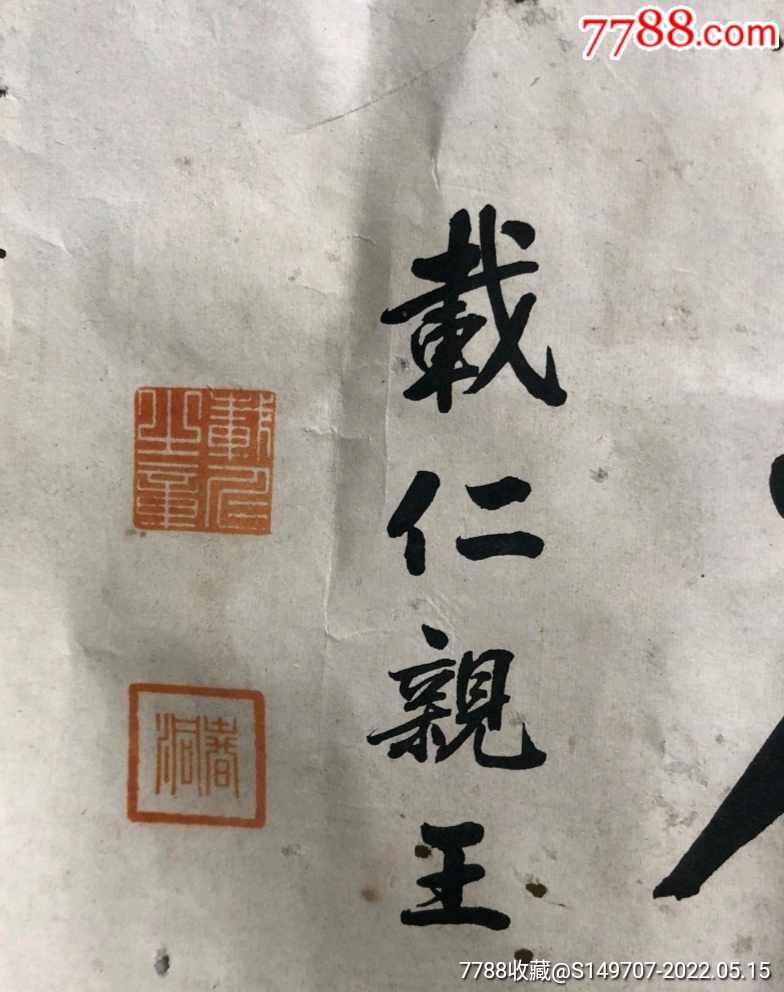 7788.com
載仁親王
載仁之章
春洞
7788收藏@S149707-2022.05.15